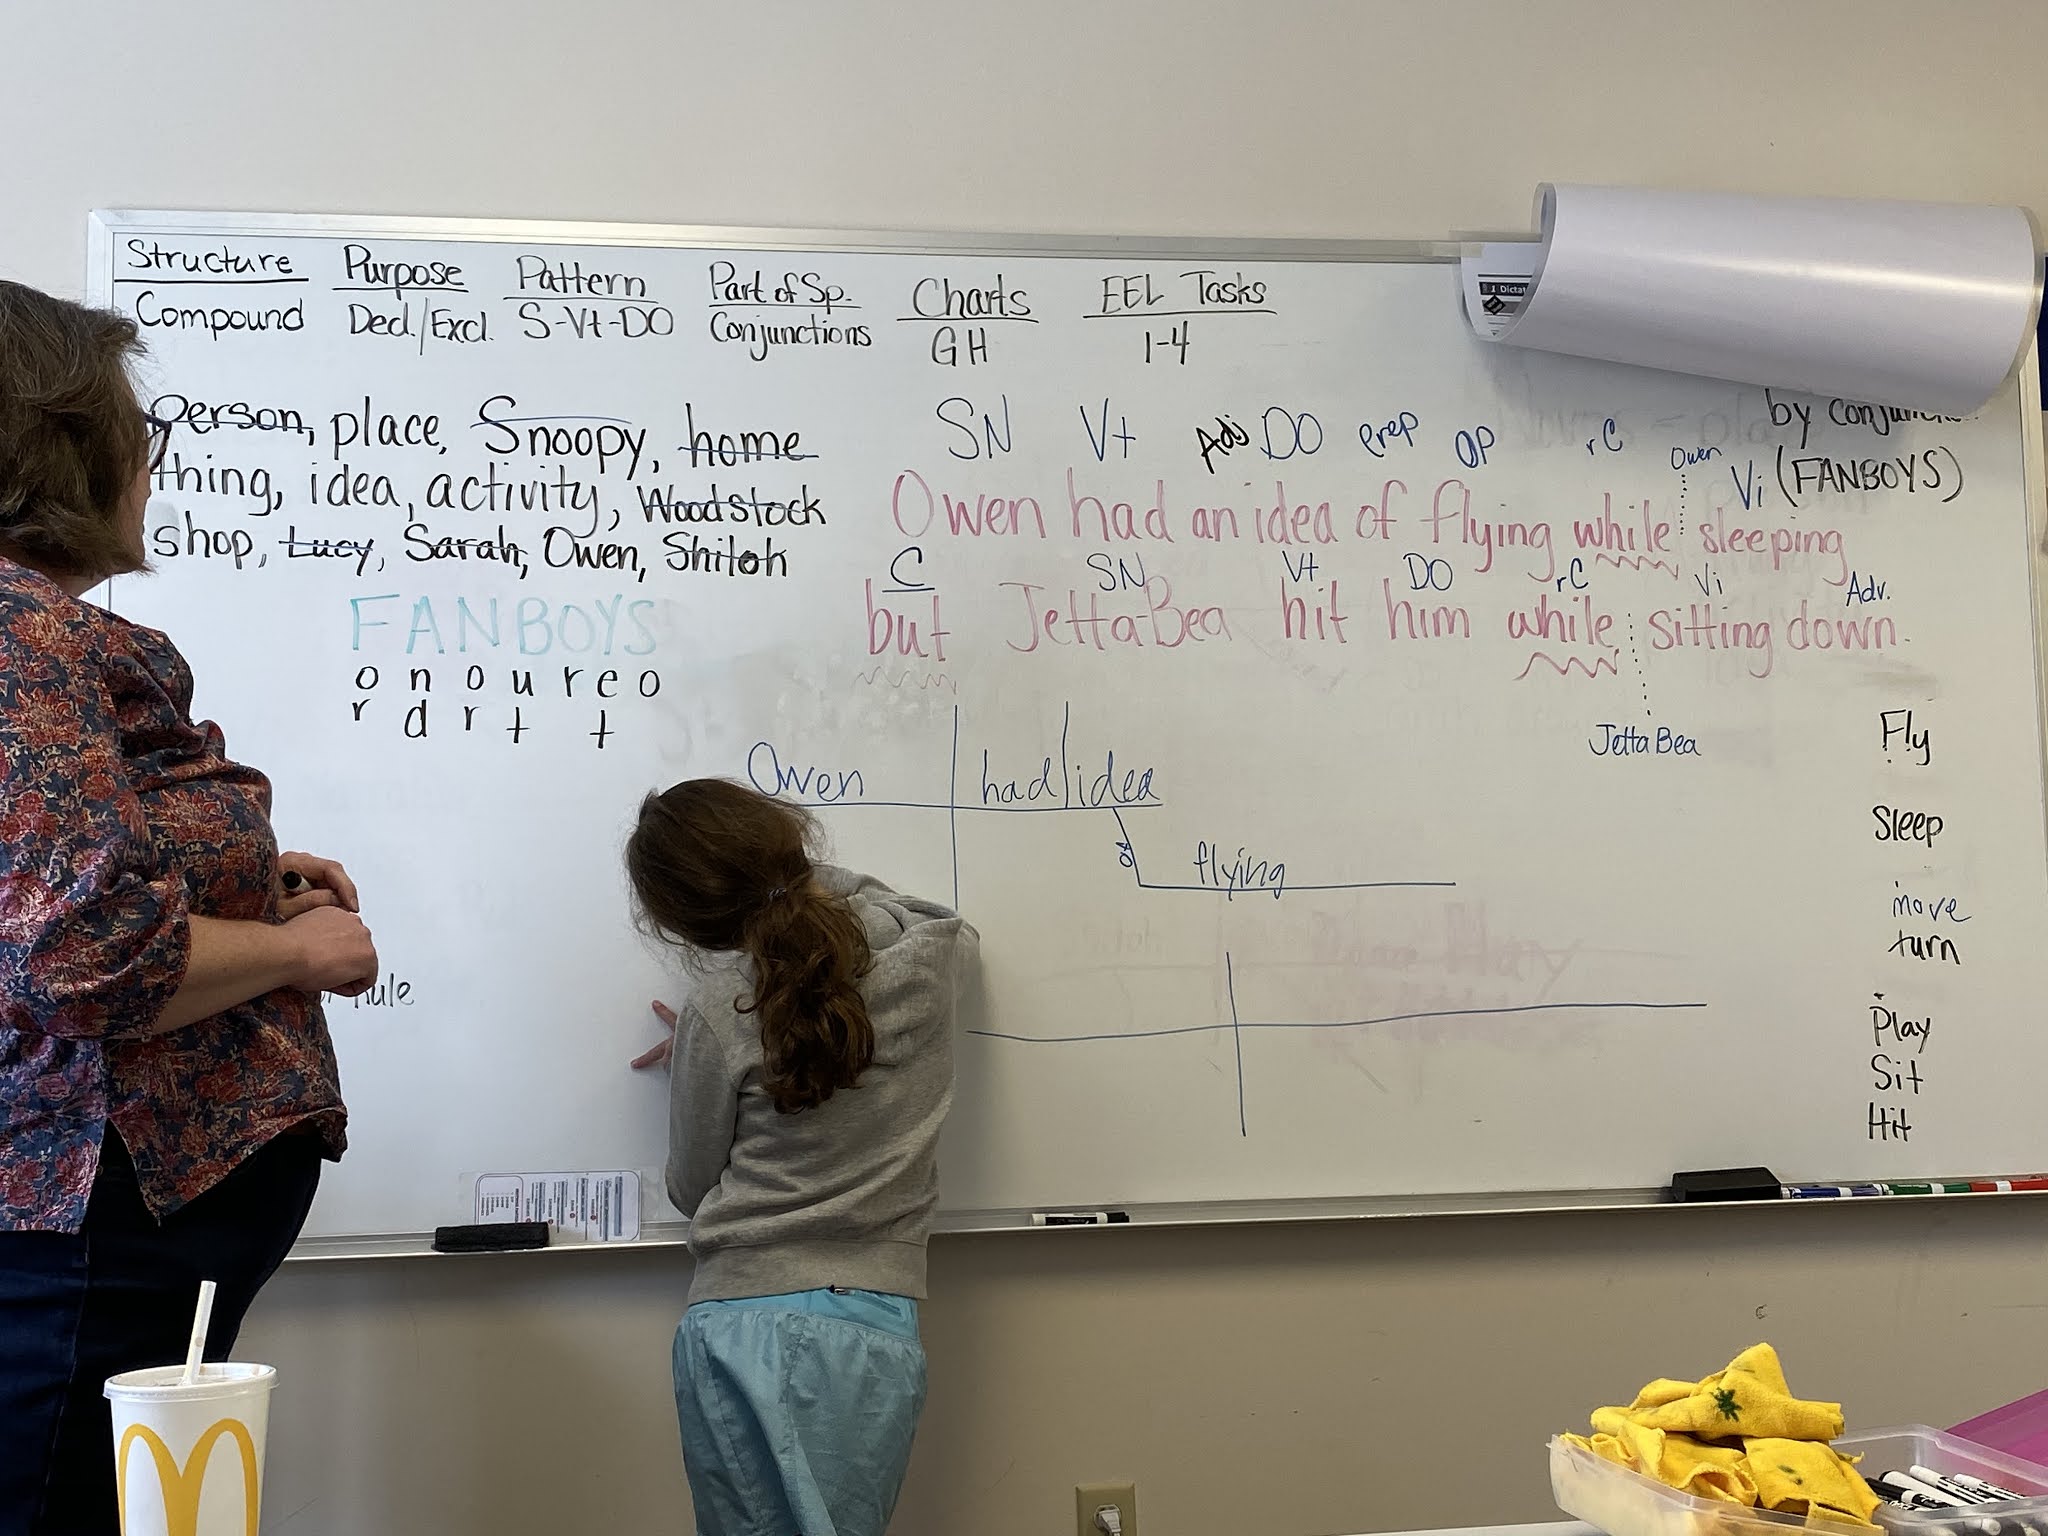 Structure Purpose Pattern Part of Sp. Charts EEL Tasks
Compound Decl./Excl. S-Vt-DO Conjunctions GH 1-4
person, place, Snoopy, home
thing, idea, activity, Woodstock
shop, Lucy, Sarah, Owen, Shiloh
FANBOYS
o n o u r e o
r d r t t
Rule
by
(FANBOYS)
SN Vt Adj DO prep OP rC Owen Vi
Owen had an idea of flying while sleeping
C SN Vt DO rC Vi Adv.
but JettaBea hit him while sitting down.
JettaBea
Owen had idea
of flying
Fly
Sleep
move
turn
Play
Sit
Hit